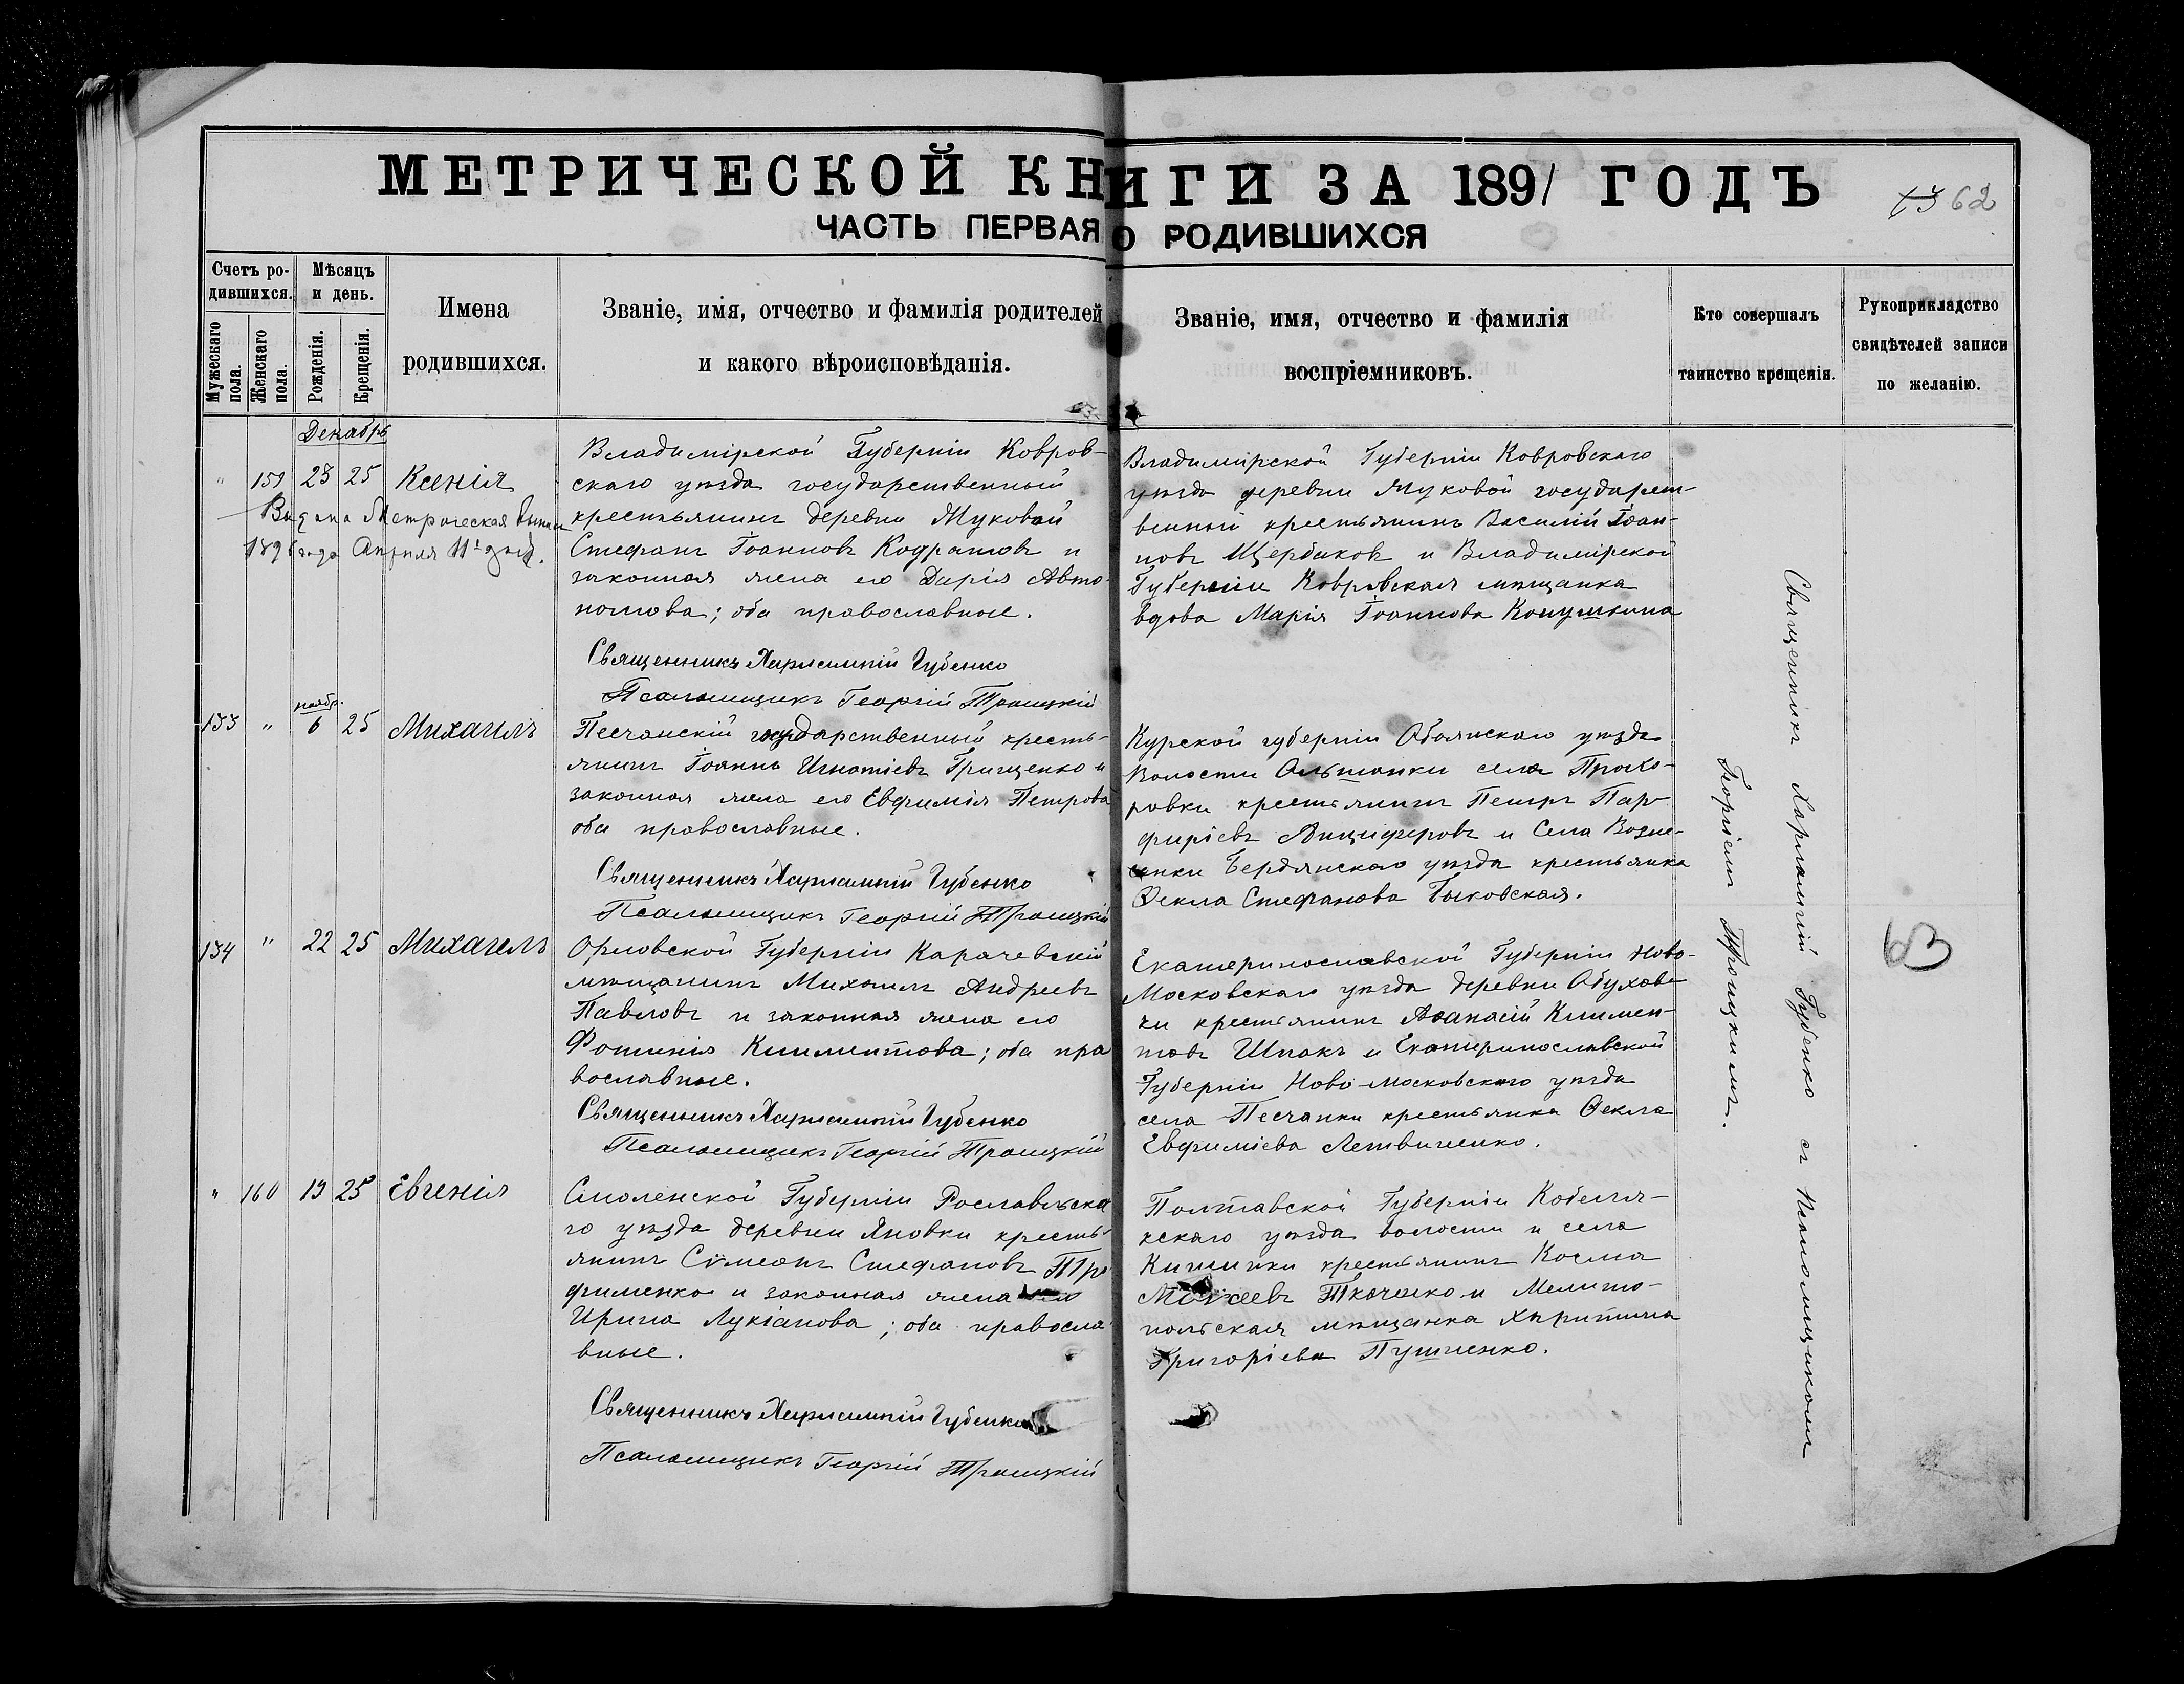 МЕТРИЧЕСКОЙ КНИГИ ЗА 1891 ГОДЪ
62
ЧАСТЬ ПЕРВАЯ О РОДИВШИХСЯ
Счетъ родившихся.
Мужескаго пола.
Женскаго пола.
Мѣсяцъ и день.
Рожденія.
Крещенія.
Имена родившихся.
Званіе, имя, отчество и фамилія родителей
и какого вѣроисповѣданія.
Званіе, имя, отчество и фамилія
воспріемниковъ.
Кто совершалъ
таинство крещенія.
Рукоприкладство
свидѣтелей записи
по желанію.
Декабрь
" 159 23 25 Ксенія
Выдана Метрическая
Апрѣля 11 дня.
Владимірской Губерніи Ковров-
скаго уѣзда государственный
крестьянинъ деревни Жуковой
Стефанъ Іоанновъ Кодратовъ и
законная жена его Дарія Авто-
номова; оба православные.
Священникъ Харлампій Губенко
Псаломщикъ Георгій Троицкій
Владимірской Губерніи Ковровскаго
уѣзда деревни Жуковой государст-
венный крестьянинъ Василій Іоан-
новъ Щербаковъ и Владимірской
Губерніи Ковровская мѣщанка
вдова Марія Іоаннова Конушкина
ноябр.
133 " 6 25 Михаилъ
Песчанскій государственный кресть-
янинъ Іоаннъ Игнатіевъ Грищенко и
законная жена его Евфимія Петрова
оба православные.
Священникъ Харлампій Губенко
Псаломщикъ Георгій Троицкій
Курской губерніи Обоянскаго уѣзда
Волости Ольшанки села Прохо-
ровки крестьянинъ Петръ Пар-
фиріевъ Анциферовъ и Села Возне-
сенки Бердянскаго уѣзда крестьянка
Ѳекла Стефанова Быковская.
134 " 22 25 Михаилъ
Орловской Губерніи Карачевскій
мѣщанинъ Михаилъ Андреевъ
Павловъ и законная жена его
Фотинія Климентова; оба пра
вославные.
Священникъ Харлампій Губенко
Псаломщикъ Георгій Троицкій
Екатеринославской Губерніи Ново-
Московскаго уѣзда деревни Обухов-
ки крестьянинъ Аѳанасій Климен-
товъ Шпакъ и Екатеринославской
Губерніи Ново-московскаго уѣзда
села Песчанки крестьянка Ѳекла
Евфиміева Летвиненко.
63
" 160 19 25 Евгенія
Смоленской Губерніи Рославльска
го уѣзда деревни Яновки кресть-
янинъ Сѵмеонъ Стефановъ Тро
фименко и законная жена его
Ирина Лукіанова; оба правосла
вные.
Священникъ Харлампій Губенко
Псаломщикъ Георгій Троицкій
Полтавской Губерніи Кобеля-
кскаго уѣзда волости и села
Кишинки крестьянинъ Косма
Моѵсеевъ Ткаченко и Мелито-
польская мѣщанка Христина
Григоріева Пушненко.
Священникъ Харлампій Губенко съ Псаломщикомъ
Георгіемъ Троицкимъ.